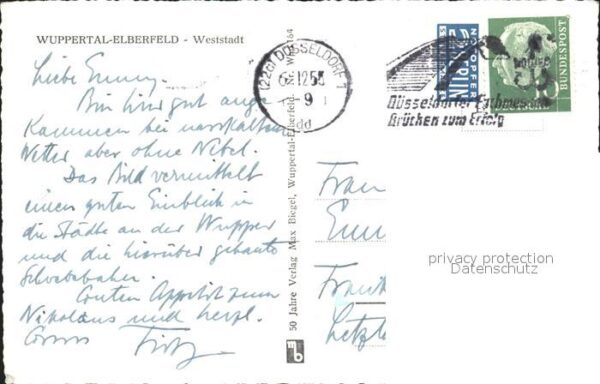 WUPPERTAL-ELBERFELD - Weststadt
Liebe Emmy.
Bin hier gut ange-
kommen bei nasskaltem
Wetter aber ohne Nebel.
Das Bild vermittelt
einen guten Einblick in
die Städte an der Wupper
und die hierüber gebaute
Schwebebahn.
Guten Appetit zum
Nikolaus und herzl.
Fritz
50 Jahre Verlag Max Biegel, Wuppertal-Elberfeld.
mb
(22c) DÜSSELDORF 1
12.53
9
dd
Düsseldorfer
Brücken zum Erfolg
NOTOPFER
BERLIN
DEUTSCHE
BUNDESPOST
Frau
Frank
privacy protection
Datenschutz